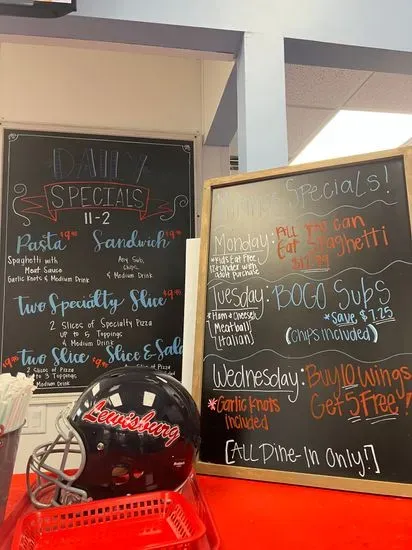 DAILY
SPECIALS
11-2
Pasta $9.95
Spaghetti with
Meat Sauce
Garlic Knots & Medium Drink
Sandwich $9.95
Any Sub,
Chips
& Medium Drink
Two Specialty Slice
2 Slices of Specialty Pizza
up to 5 Toppings
& Medium Drink
Two Slice
2 Slices of Pizza
up to 5 Toppings
Medium Drink
Slice & Salad
1 Slice of Pizza
Specials!
Monday: All you can
Eat Spaghetti
*Kids Eat Free
12 & under with
adult purchase
Tuesday: BOGO Subs
*Ham & Cheese
Meatball
Italian
*Save $7.25
(chips included)
Wednesday: Buy 10 Wings
Get 5 Free!
*Garlic Knots
included
[All Dine-In Only!]
Lewisburg